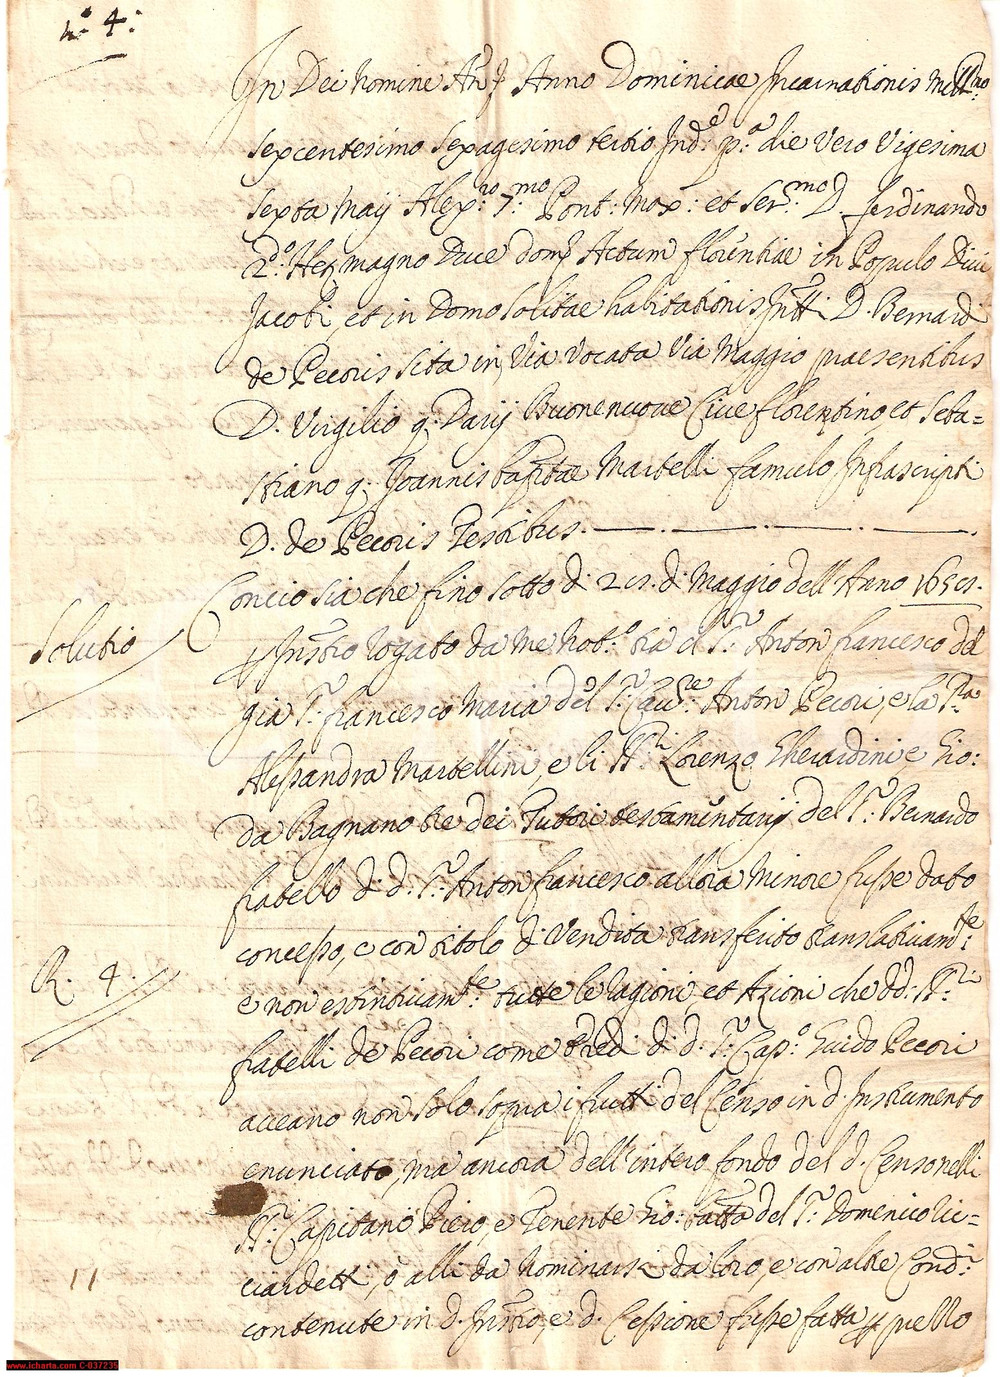 n.° 4:
In Dei Nomine Am̃ Anno Dominicae Incarnationis Mill.mo
sexcentesimo sexagesimo tertio Ind.e p.a die Vero Vigesima
sexta Maij Alex.ro 7.mo Pont: Max: et Ser.mo D. Ferdinando
2.° Magno Duce Actum Florentiae in Populo Divi
Jacobi, et in Domo solitae habitationis D. Bernardi
de Pecoris sita in Via vocata Via Maggio praesentibus
D. Virgilio q. Darij Buonenuove Cive florentino, et Seba=
stiano q. Joannis Martelli famulo Infrascripti
D. de Pecoris Testibus.
Concio sia che fino sotto di di Maggio dell'Anno
Solutio
rogato da me Not.° tra il S.r Anton francesco del
gia S.r francesco Maria del S.r Cav.re Anton Pecori, e la S.ra
Alessandra Martellini, e li SS.ri Lorenzo Gherardini e Gio:
da Bagnano tre dei Tutori testamentarij del S.r Bernardo
fratello di d. S.r Anton francesco allora Minore fusse dato
concesso, e con titolo di Vendita transferito translativam.te
e non estintivam.te tutte le ragioni, et Azioni che dd: SS.ri
R. 4.
fratelli de Pecori come Eredi di d. S.r Cap.° Guido Pecori
aveano non solo sopra i frutti del Censo in d. Instrumento
enunciato, ma ancora dell'intero fondo del d. Censo nelli
SS.ri Capitano Piero, e Tenente Gio: Batta del S.r Domenico Ric=
ciardetti, o alli da Nominarsi da loro, e con altre Cond.i
contenute in d. Instr̃o, e d. Cessione fusse fatta p quello
11
www.icharta.com C-037235